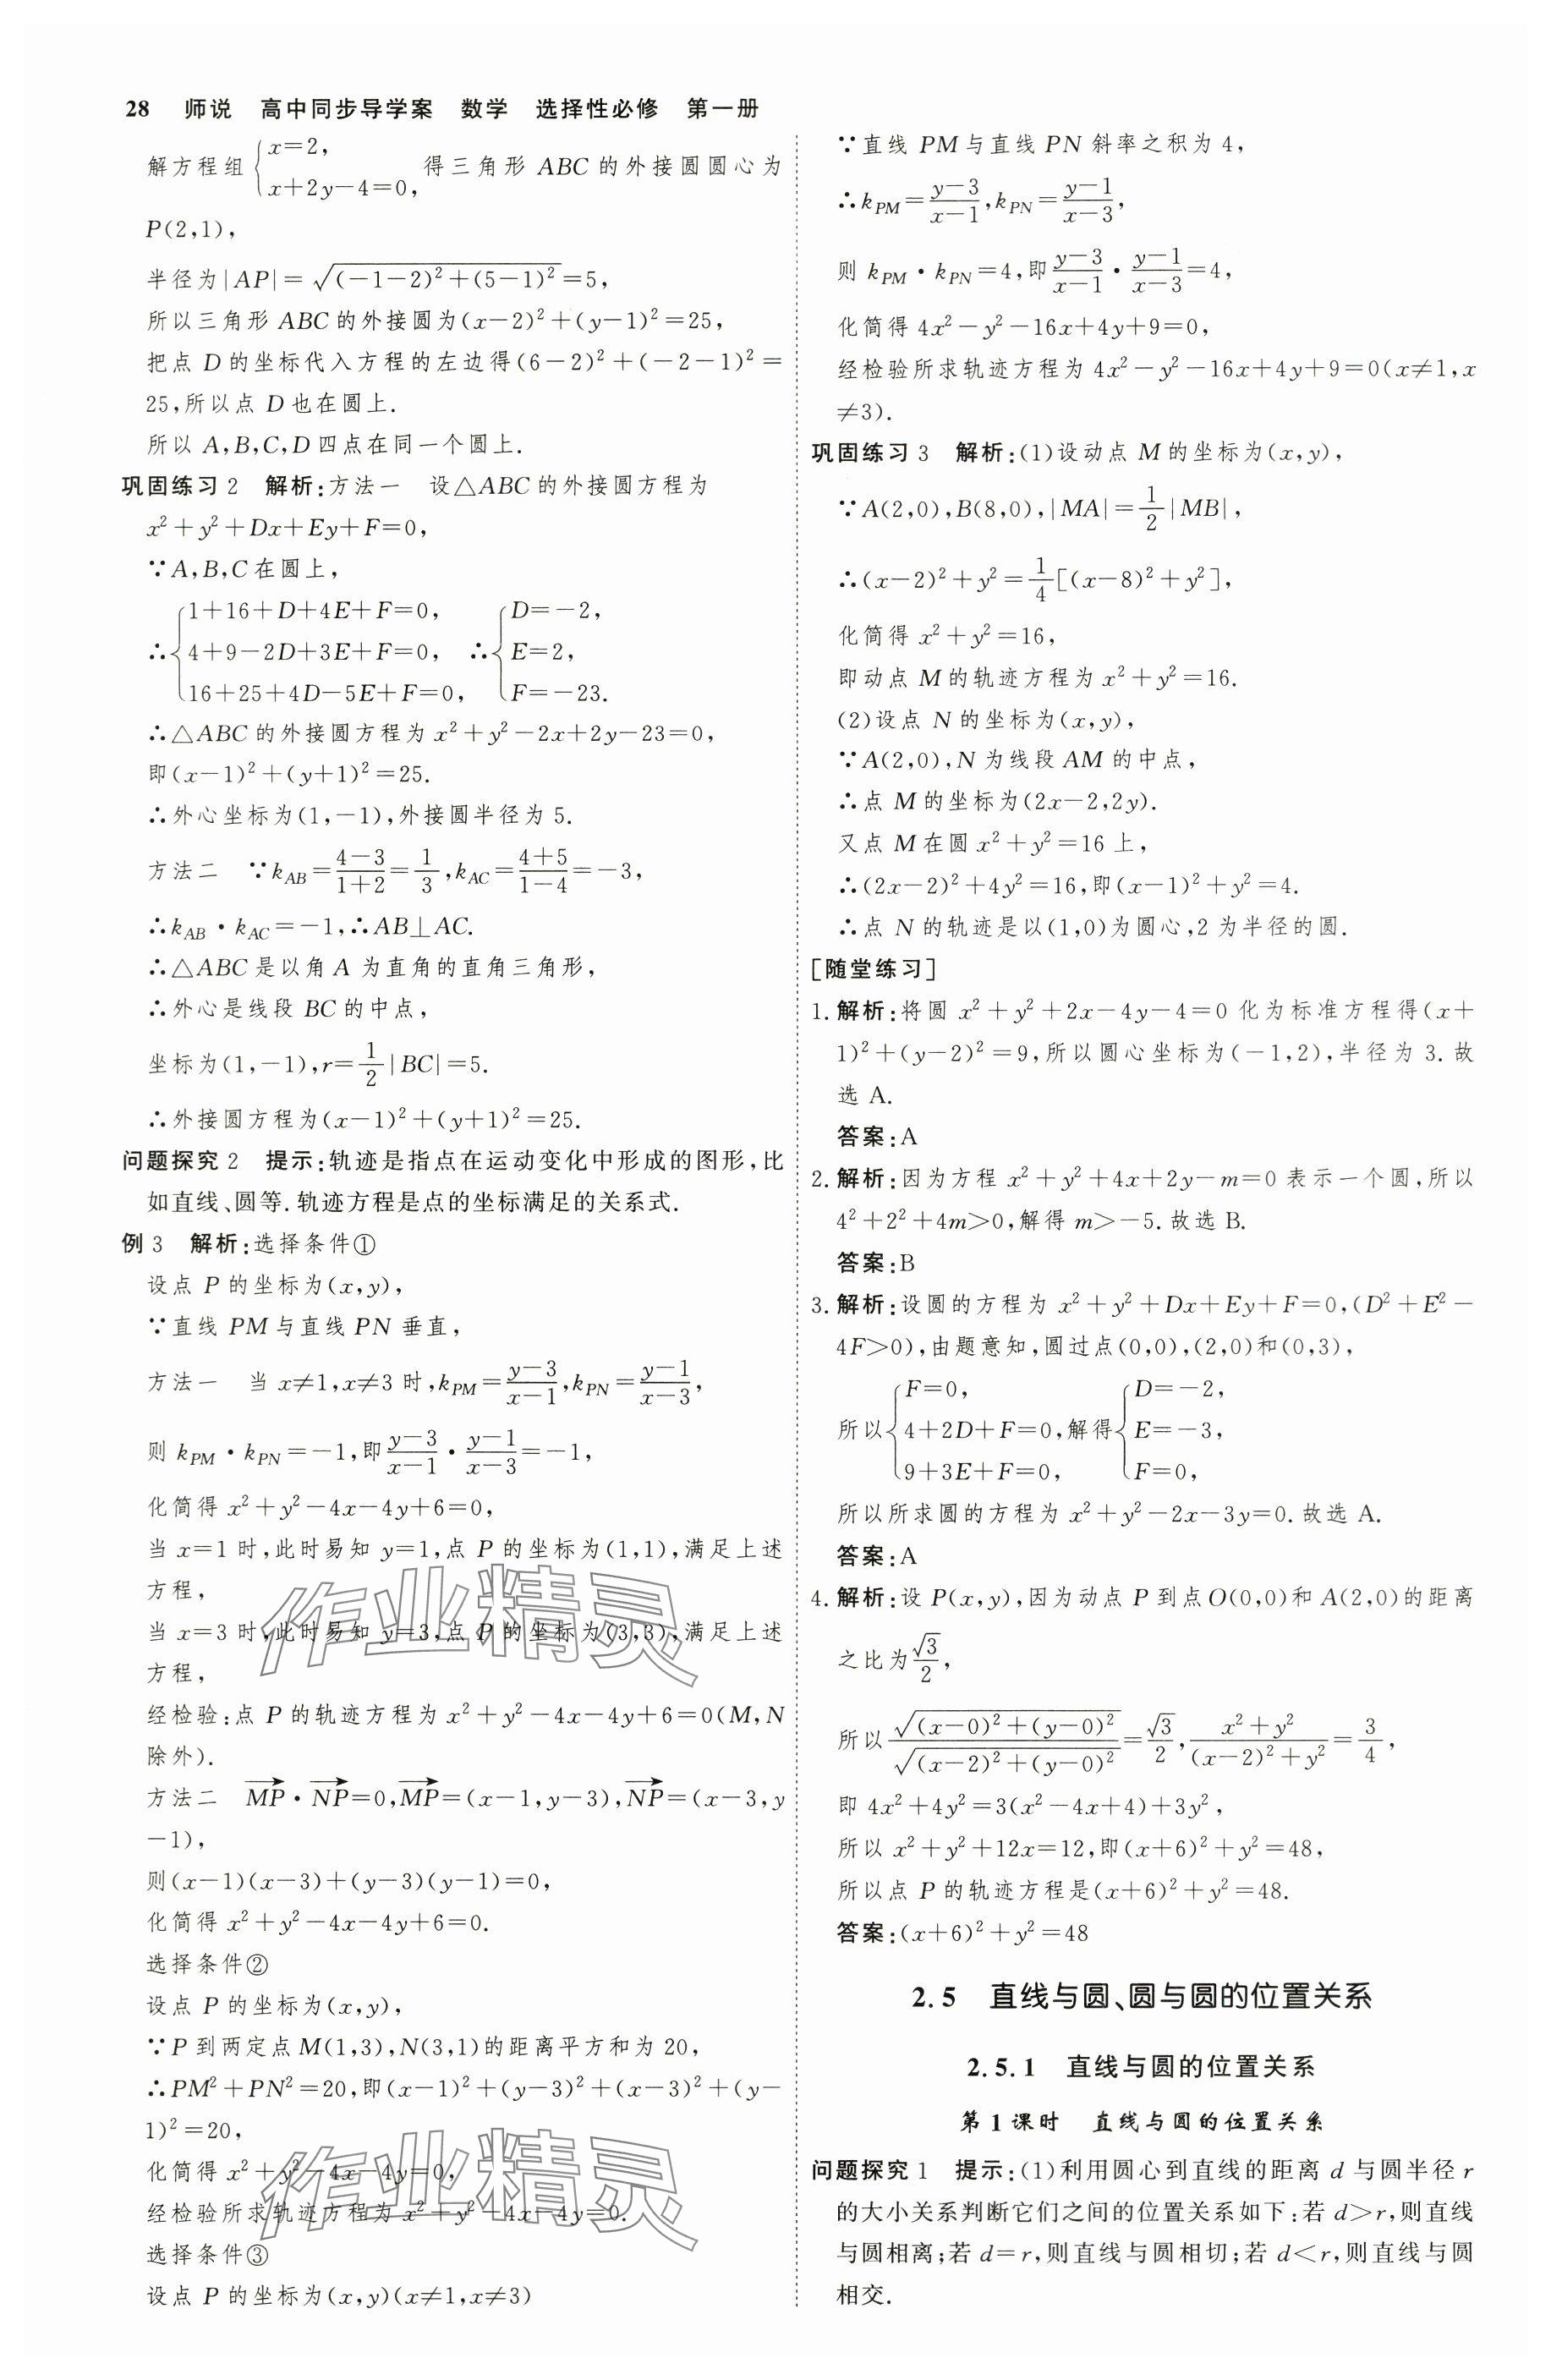 28 师说 高中同步导学案 数学 选择性必修 第一册
解方程组{x=2, x+2y-4=0, 得三角形 ABC 的外接圆圆心为
P(2,1),
半径为|AP|=√((-1-2)²+(5-1)²)=5,
所以三角形 ABC 的外接圆为(x-2)²+(y-1)²=25,
把点 D 的坐标代入方程的左边得(6-2)²+(-2-1)²=
25,所以点 D 也在圆上.
所以 A,B,C,D 四点在同一个圆上.
巩固练习 2 解析:方法一 设△ABC 的外接圆方程为
x²+y²+Dx+Ey+F=0,
∵A,B,C 在圆上,
∴{1+16+D+4E+F=0, 4+9-2D+3E+F=0, 16+25+4D-5E+F=0, ∴{D=-2, E=2, F=-23.
∴△ABC 的外接圆方程为 x²+y²-2x+2y-23=0,
即(x-1)²+(y+1)²=25.
∴外心坐标为(1,-1),外接圆半径为 5.
方法二 ∵k_AB=(4-3)/(1+2)=1/3,k_AC=(4+5)/(1-4)=-3,
∴k_AB·k_AC=-1,∴AB⊥AC.
∴△ABC 是以角 A 为直角的直角三角形,
∴外心是线段 BC 的中点,
坐标为(1,-1),r=1/2|BC|=5.
∴外接圆方程为(x-1)²+(y+1)²=25.
问题探究 2 提示:轨迹是指点在运动变化中形成的图形,比
如直线、圆等.轨迹方程是点的坐标满足的关系式.
例 3 解析:选择条件①
设点 P 的坐标为(x,y),
∵直线 PM 与直线 PN 垂直,
方法一 当 x≠1,x≠3 时,k_PM=(y-3)/(x-1),k_PN=(y-1)/(x-3),
则 k_PM·k_PN=-1,即(y-3)/(x-1)·(y-1)/(x-3)=-1,
化简得 x²+y²-4x-4y+6=0,
当 x=1 时,此时易知 y=1,点 P 的坐标为(1,1),满足上述
方程,
当 x=3 时,此时易知 y=3,点 P 的坐标为(3,3),满足上述
方程,
经检验:点 P 的轨迹方程为 x²+y²-4x-4y+6=0(M,N
除外).
方法二 →MP·→NP=0,→MP=(x-1,y-3),→NP=(x-3,y
-1),
则(x-1)(x-3)+(y-3)(y-1)=0,
化简得 x²+y²-4x-4y+6=0.
选择条件②
设点 P 的坐标为(x,y),
∵P 到两定点 M(1,3),N(3,1)的距离平方和为 20,
∴PM²+PN²=20,即(x-1)²+(y-3)²+(x-3)²+(y-
1)²=20,
化简得 x²+y²-4x-4y=0,
经检验所求轨迹方程为 x²+y²-4x-4y=0.
选择条件③
设点 P 的坐标为(x,y)(x≠1,x≠3)
∵直线 PM 与直线 PN 斜率之积为 4,
∴k_PM=(y-3)/(x-1),k_PN=(y-1)/(x-3),
则 k_PM·k_PN=4,即(y-3)/(x-1)·(y-1)/(x-3)=4,
化简得 4x²-y²-16x+4y+9=0,
经检验所求轨迹方程为 4x²-y²-16x+4y+9=0(x≠1,x
≠3).
巩固练习 3 解析:(1)设动点 M 的坐标为(x,y),
∵A(2,0),B(8,0),|MA|=1/2|MB|,
∴(x-2)²+y²=1/4[(x-8)²+y²],
化简得 x²+y²=16,
即动点 M 的轨迹方程为 x²+y²=16.
(2)设点 N 的坐标为(x,y),
∵A(2,0),N 为线段 AM 的中点,
∴点 M 的坐标为(2x-2,2y).
又点 M 在圆 x²+y²=16 上,
∴(2x-2)²+4y²=16,即(x-1)²+y²=4.
∴点 N 的轨迹是以(1,0)为圆心,2 为半径的圆.
[随堂练习]
1. 解析:将圆 x²+y²+2x-4y-4=0 化为标准方程得(x+
1)²+(y-2)²=9,所以圆心坐标为(-1,2),半径为 3.故
选 A.
答案:A
2. 解析:因为方程 x²+y²+4x+2y-m=0 表示一个圆,所以
4²+2²+4m>0,解得 m>-5.故选 B.
答案:B
3. 解析:设圆的方程为 x²+y²+Dx+Ey+F=0,(D²+E²-
4F>0),由题意知,圆过点(0,0),(2,0)和(0,3),
所以{F=0, 4+2D+F=0, 9+3E+F=0, 解得{D=-2, E=-3, F=0,
所以所求圆的方程为 x²+y²-2x-3y=0.故选 A.
答案:A
4. 解析:设 P(x,y),因为动点 P 到点 O(0,0)和 A(2,0)的距离
之比为√3/2,
所以√((x-0)²+(y-0)²)/√((x-2)²+(y-0)²)=√3/2,(x²+y²)/((x-2)²+y²)=3/4,
即 4x²+4y²=3(x²-4x+4)+3y²,
所以 x²+y²+12x=12,即(x+6)²+y²=48,
所以点 P 的轨迹方程是(x+6)²+y²=48.
答案:(x+6)²+y²=48
2.5 直线与圆、圆与圆的位置关系
2.5.1 直线与圆的位置关系
第 1 课时 直线与圆的位置关系
问题探究 1 提示:(1)利用圆心到直线的距离 d 与圆半径 r
的大小关系判断它们之间的位置关系如下:若 d>r,则直线
与圆相离;若 d=r,则直线与圆相切;若 d<r,则直线与圆
相交.
作业精灵
作业精灵